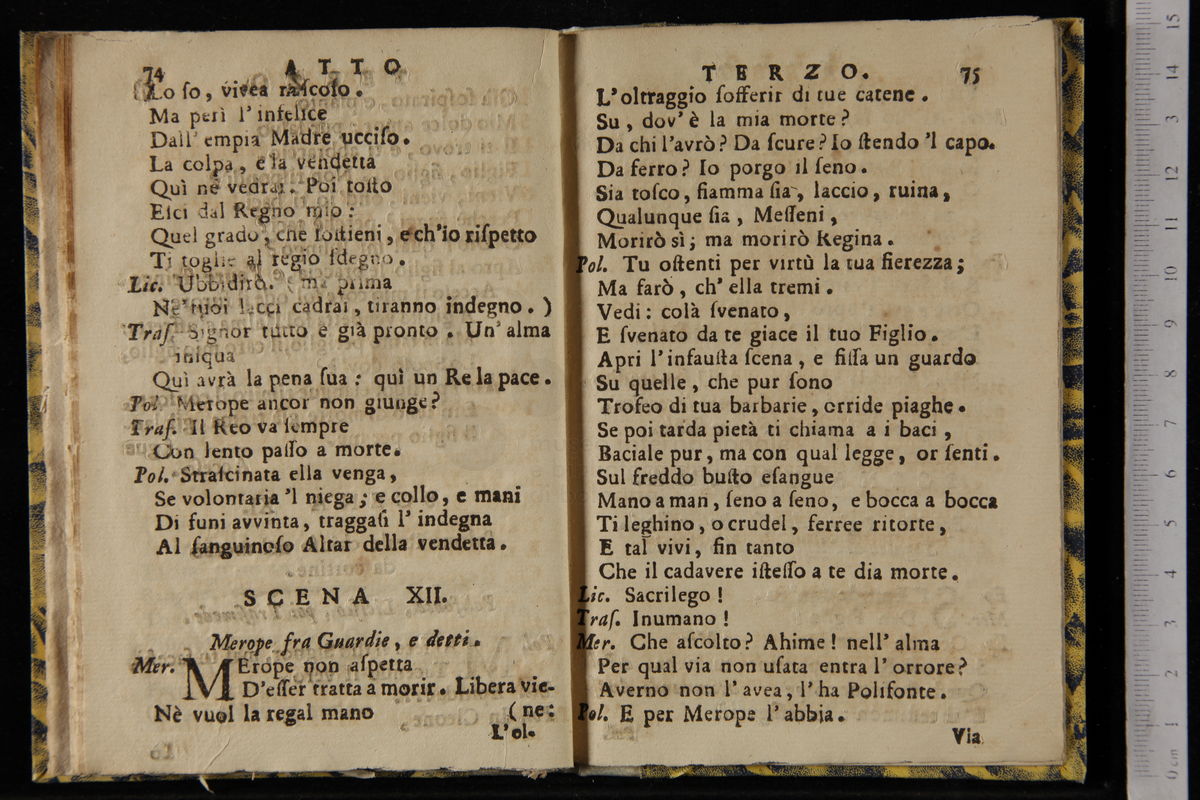 74 ATTO
Lo ſo, vivea naſcoſo.
Ma perì l'infelice
Dall' empia Madre ucciſo.
La colpa, e la vendetta
Quì ne vedrai. Poi toſto
Eſci dal Regno mio:
Quel grado, che ſoſtieni, e ch'io riſpetto
Ti toglie al regio ſdegno.
Lic. Ubbidirò. ( ma prima
Ne' tuoi lacci cadrai, tiranno indegno. )
Traſ. Signor tutto è già pronto. Un' alma
iniqua
Quì avrà la pena ſua: quì un Re la pace.
Pol. Merope ancor non giunge?
Traſ. Il Reo va ſempre
Con lento paſſo a morte.
Pol. Straſcinata ella venga,
Se volontaria 'l niega; e collo, e mani
Di funi avvinta, traggaſi l' indegna
Al ſanguinoſo Altar della vendetta.
SCENA XII.
Merope fra Guardie, e detti.
Mer. MErope non aſpetta
D'eſſer tratta a morir. Libera vie-
Nè vuol la regal mano (ne:
L'ol-
TERZO. 75
L'oltraggio ſofferir di tue catene.
Su, dov' è la mia morte?
Da chi l'avrò? Da ſcure? Io ſtendo 'l capo.
Da ferro? Io porgo il ſeno.
Sia toſco, fiamma ſia, laccio, ruina,
Qualunque ſia, Meſſeni,
Morirò sì; ma morirò Regina.
Pol. Tu oſtenti per virtù la tua fierezza;
Ma farò, ch' ella tremi.
Vedi: colà ſvenato,
E ſvenato da te giace il tuo Figlio.
Apri l'infauſta ſcena, e fiſſa un guardo
Su quelle, che pur ſono
Trofeo di tua barbarie, orride piaghe.
Se poi tarda pietà ti chiama a i baci,
Baciale pur, ma con qual legge, or ſenti.
Sul freddo buſto eſangue
Mano a man, ſeno a ſeno, e bocca a bocca
Ti leghino, o crudel, ferree ritorte,
E tal vivi, fin tanto
Che il cadavere iſteſſo a te dia morte.
Lic. Sacrilego!
Traſ. Inumano!
Mer. Che aſcolto? Ahime! nell' alma
Per qual via non uſata entra l' orrore?
Averno non l' avea, l' ha Polifonte.
Pol. E per Merope l' abbia.
Via